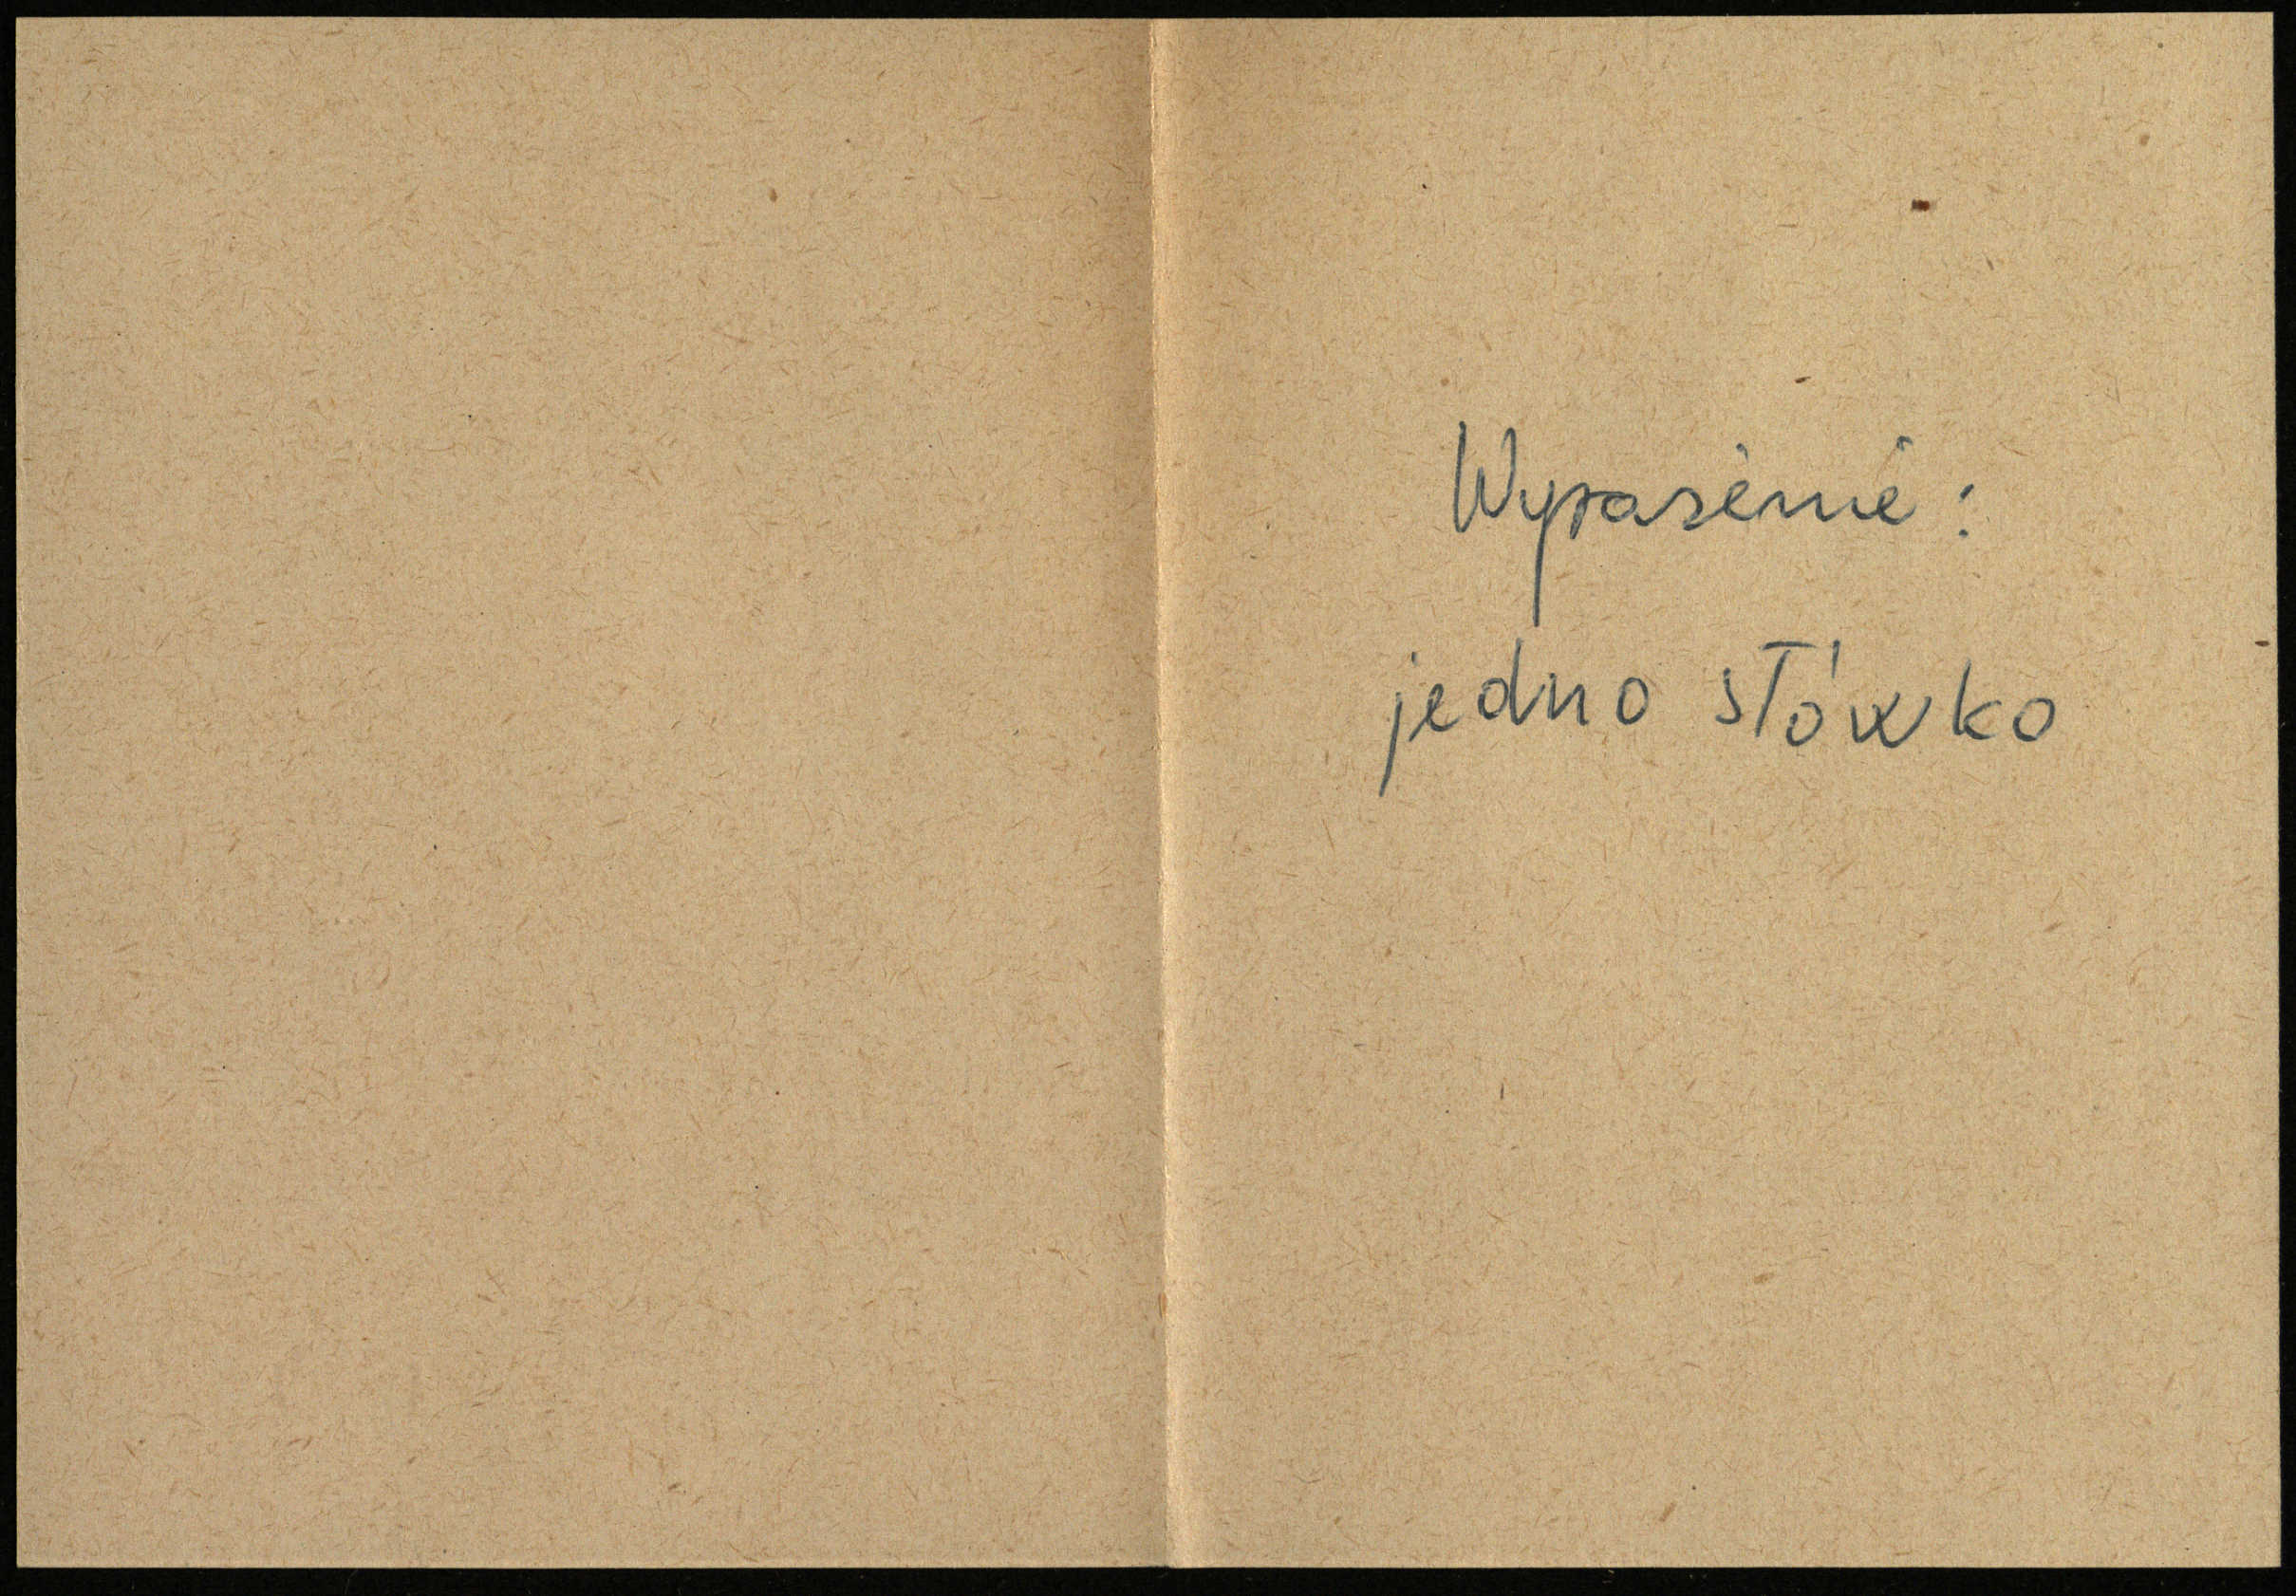 Wypasienie:
jedno słówko